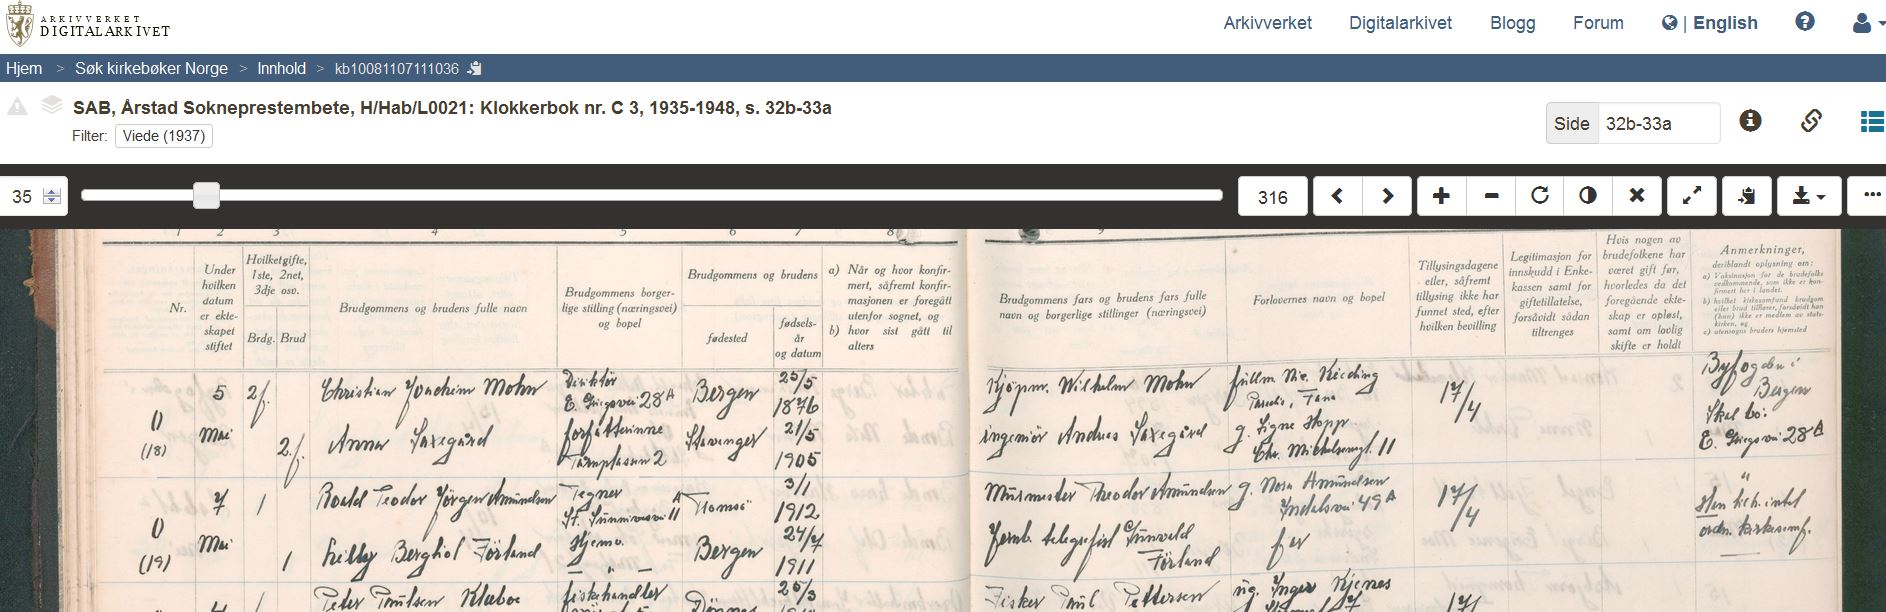 ARKIVVERKET
DIGITALARKIVET
Arkivverket Digitalarkivet Blogg Forum | English
Hjem > Søk kirkebøker Norge > Innhold > kb10081107111036
SAB, Årstad Sokneprestembete, H/Hab/L0021: Klokkerbok nr. C 3, 1935-1948, s. 32b-33a
Filter: Viede (1937)
Side 32b-33a
35 316
1 2 3 4 5 6 7 8 9
Nr.
Under
hvilken
datum
er ekte-
skapet
stiftet
Hvilket gifte,
1ste, 2net,
3dje osv.
Brdg. Brud
Brudgommens og brudens fulle navn
Brudgommens borger-
lige stilling (næringsvei)
og bopel
Brudgommens og brudens
fødested
fødsels-
år
og datum
a) Når og hvor konfir-
mert, såfremt konfir-
masjonen er foregått
utenfor sognet, og
b) hvor sist gått til
alters
Brudgommens fars og brudens fars fulle
navn og borgerlige stillinger (næringsvei)
Forlovernes navn og bopel
Tillysingsdagene
eller, såfremt
tillysing ikke har
funnet sted, efter
hvilken bevilling
Legitimasjon for
innskudd i Enke-
kassen samt for
giftetillatelse,
forsåvidt sådan
tiltrenges
Hvis nogen av
brudefolkene har
været gift før,
hvorledes da det
foregående ekte-
skap er opløst,
samt om lovlig
skifte er holdt
Anmerkninger,
deriblandt oplysning om:
a) Vaksinasjon for de brudefolks
vedkommende, som ikke er kon-
firmert her i landet.
b) hvilket kirkesamfund brudgom
eller brud tilhører, forsåvidt han
(hun) ikke er medlem av stats-
kirken, og
c) utensogns bruders hjemsted
0
(18)
5
Mai
2f.
2.f.
Christian Joachim Mohn
Anna Saxegård
Direktør
E. Griegsvei 28A
forfatterinne
Tårnplassen 2
Bergen
Stavanger
25/5
1876
21/5
1905
Kjøpm. Wilhelm Mohn
ingeniør Andreas Saxegård
fullm. Nic. Kieding
Paradis, Fana
g. Signe Hopp
Chr. Michelsensgt. 11
17/4
Byfogden i
Bergen
Skal bo:
E. Griegsvei 28A
0
(19)
7
Mai
1
1
Roald Teodor Jørgen Amundsen
Berghol Förland
Tegner
St. Sunnivasvei 11A
Hjemv.
— " —
Tromsö
Bergen
3/1
1912
24/7
1911
Murmester Theodor Amundsen
Jernb. telegrafist Gunvald
Förland
g. Nora Amundsen
Indalsvei 49A
far
17/4
"
ordn. kirkesamf.
1
Peter Poulsen Klæboe
fiskehandler
Dönnes
25/3
Fisker Paul Pettersen
ug. Inger Kjenes
17/